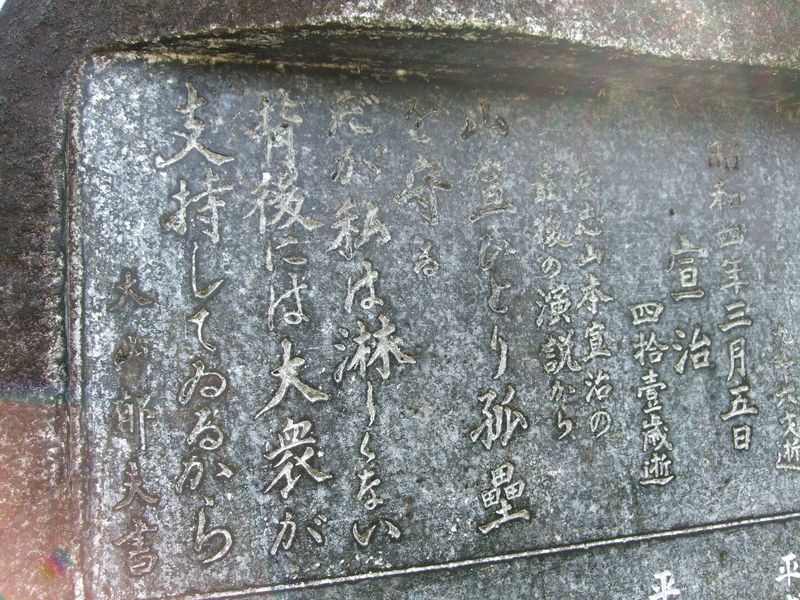 九十六才逝
昭和四年三月五日
宣治
四拾壹歳逝
同志山本宣治の
最後の演説から
山宣ひとり孤壘
を守る
だが私は淋しくない
背後には大衆が
支持してゐるから
大山郁夫書
平
平